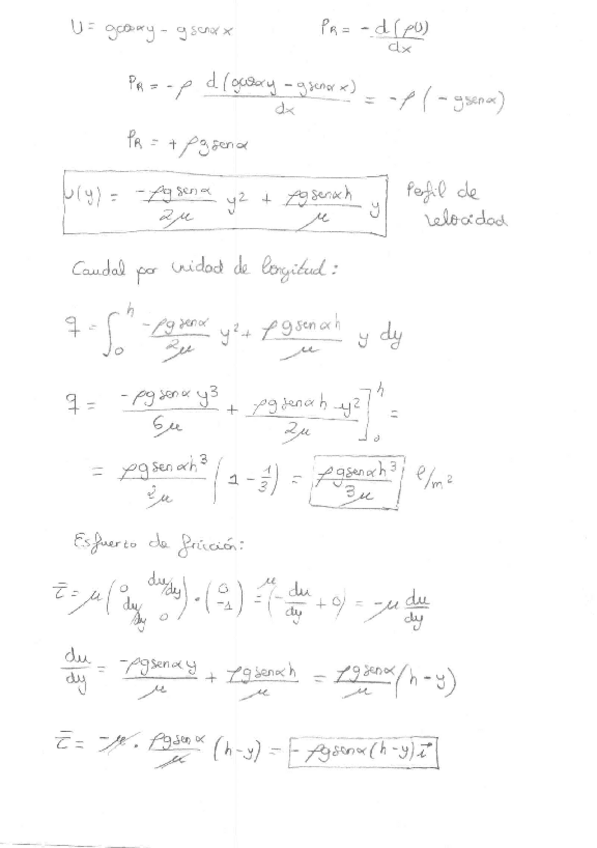 U = gcosαy - gsenαx    P_R = - d(ρU)/dx
P_R = -ρ d(gcosαy - gsenαx)/dx = -ρ(-gsenα)
P_R = +ρgsenα
u(y) = -ρgsenα/2μ y² + ρgsenαh/μ y    Perfil de
velocidad
Caudal por unidad de longitud:
q = ∫₀ʰ -ρgsenα/2μ y² + ρgsenαh/μ y dy
q = -ρgsenαy³/6μ + ρgsenαh y²/2μ ]₀ʰ =
= ρgsenαh³/2μ (1 - 1/3) = ρgsenαh³/3μ ℓ/m²
Esfuerzo de fricción:
τ̄ = μ (0 du/dy du/dy 0) · (0 -1) = μ(-du/dy + 0) = -μ du/dy
du/dy = -ρgsenαy/μ + ρgsenαh/μ = ρgsenα/μ (h-y)
τ̄ = -μ · ρgsenα/μ (h-y) = -ρgsenα(h-y) i⃗